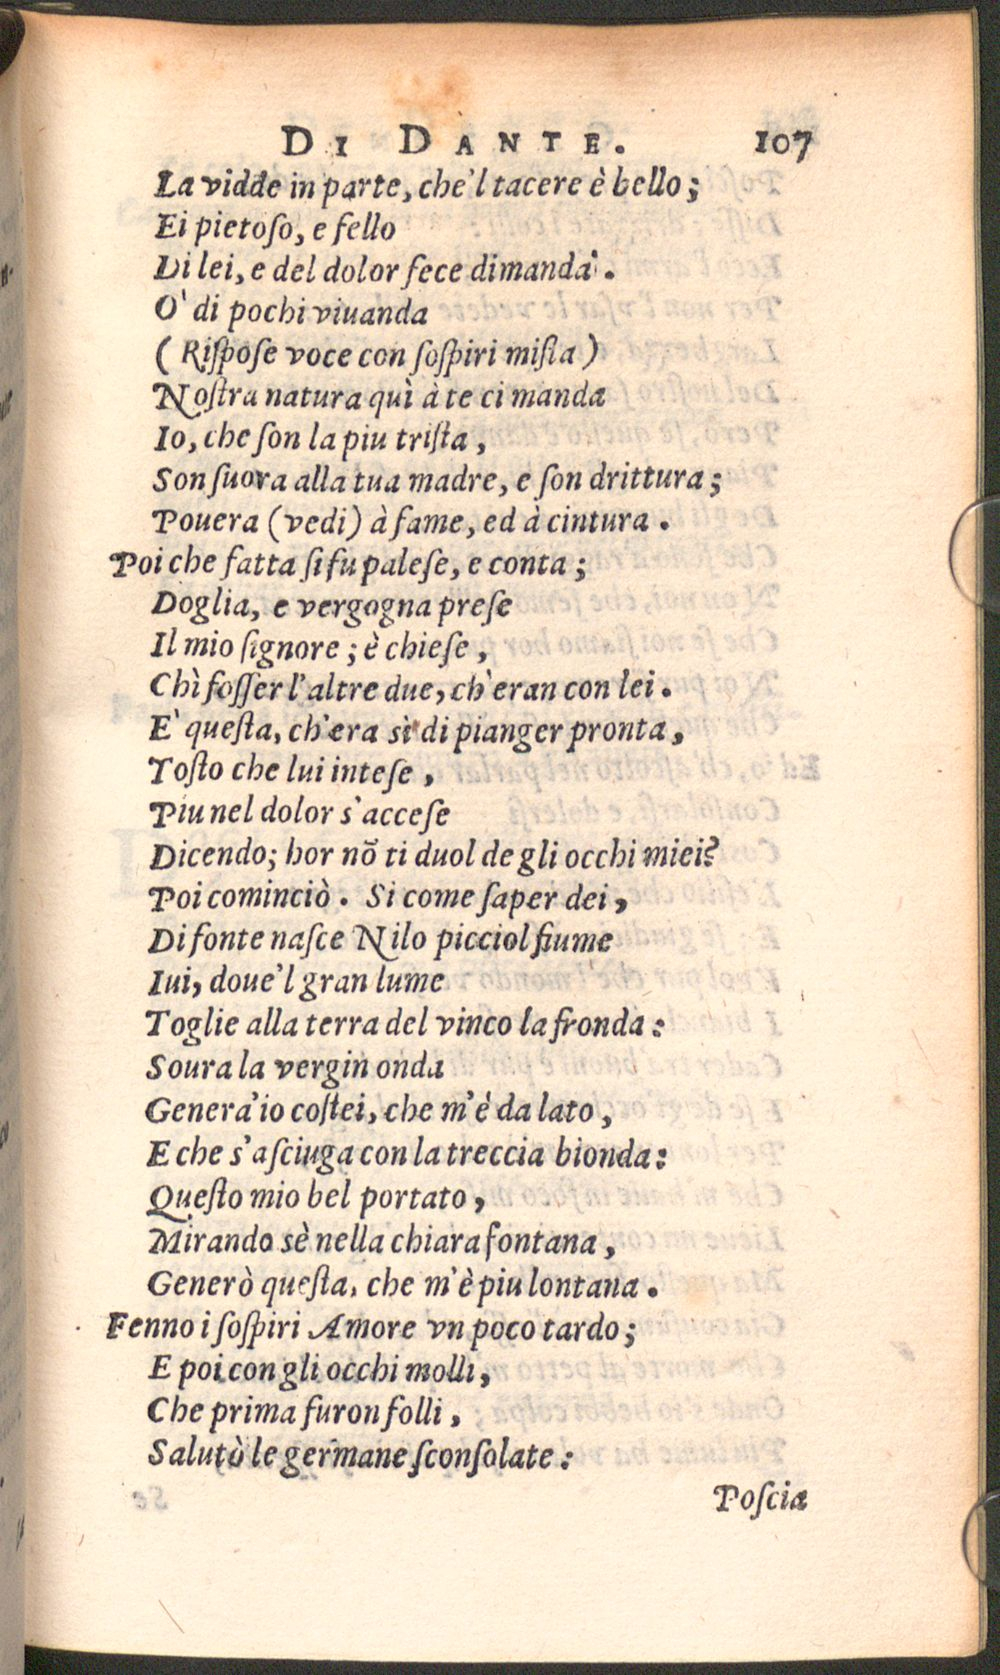 DI DANTE. 107
La vidde in parte, che'l tacere è bello;
Ei pietoſo, e fello
Di lei, e del dolor fece dimanda.
O' di pochi viuanda
(Riſpoſe voce con ſoſpiri miſta)
Noſtra natura quì à te ci manda
Io, che ſon la piu triſta,
Son ſuora alla tua madre, e ſon drittura;
Pouera (vedi) à fame, ed à cintura.
Poi che fatta ſi fu paleſe, e conta;
Doglia, e vergogna preſe
Il mio ſignore; è chieſe,
Chì foſſer l'altre due, ch'eran con lei.
E' queſta, ch'era sì di pianger pronta,
Toſto che lui inteſe,
Piu nel dolor s'acceſe
Dicendo; hor nō ti duol de gli occhi miei?
Poi cominciò. Si come ſaper dei,
Di fonte naſce Nilo picciol fiume
Iui, doue'l gran lume
Toglie alla terra del vinco la fronda:
Soura la vergin onda
Genera'io coſtei, che m'è da lato,
E che s'aſciuga con la treccia bionda:
Queſto mio bel portato,
Mirando sè nella chiara fontana,
Generò queſta, che m'è piu lontana.
Fenno i ſoſpiri Amore vn poco tardo;
E poi con gli occhi molli,
Che prima furon folli,
Salutò le germane ſconſolate:
Poſcia